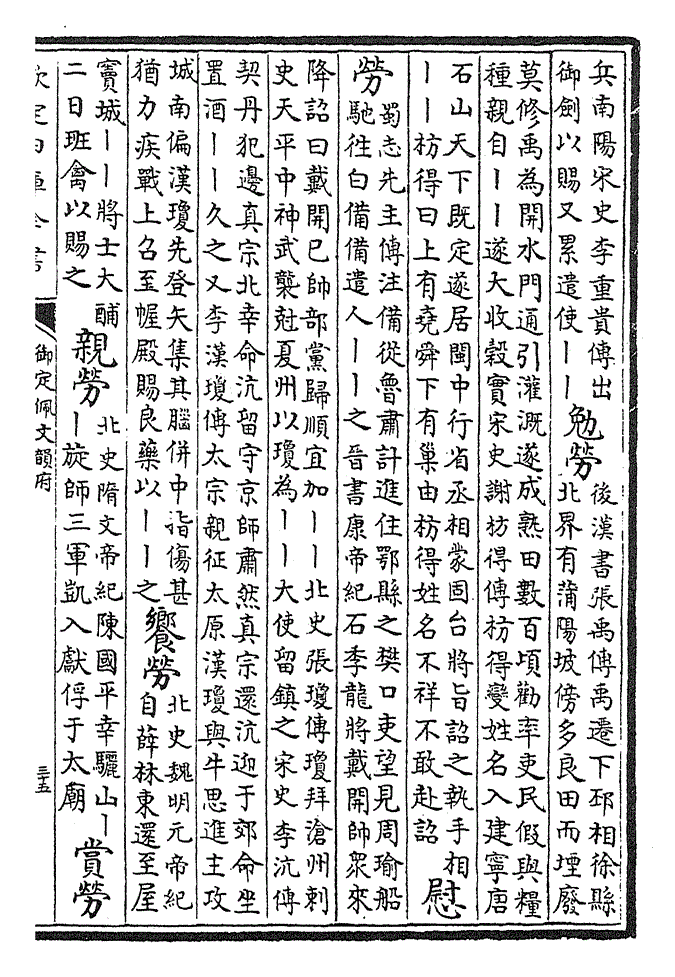 兵南陽宋史李重貴傳出
御劍以賜又累遣使丨丨
勉勞
後漢書張禹傳禹遷下邳相徐縣
北界有蒲陽坡傍多良田而堙廢
莫修禹為開水門通引灌溉遂成熟田數百頃勸率吏民假與糧
種親自丨丨遂大收穀實宋史謝枋得傳枋得變姓名入建寧唐
石山天下既定遂居閩中行省丞相蒙固台將旨詔之執手相
丨丨枋得曰上有堯舜下有巢由枋得姓名不祥不敢赴詔
慰
勞
蜀志先主傳注備從魯肅計進住鄂縣之樊口吏望見周瑜船
馳往白備備遣人丨丨之晉書康帝紀石季龍將戴開帥衆來
降詔曰戴開已帥部黨歸順宜加丨丨北史張瓊傳瓊拜滄州刺
史天平中神武襲尅夏州以瓊為丨丨大使留鎮之宋史李沆傳
契丹犯邊真宗北幸命沆留守京師肅然真宗還沆迎于郊命坐
置酒丨丨久之又李漢瓊傳太宗親征太原漢瓊與牛思進主攻
城南偏漢瓊先登矢集其腦併中詣傷甚
猶力疾戰上召至幄殿賜良藥以丨丨之
饗勞
北史魏明元帝紀
自薛林東還至屋
竇城丨丨將士大酺
二日班禽以賜之
親勞
北史隋文帝紀陳國平幸驪山丨
丨旋師三軍凱入獻俘于太廟
賞勞
欽定四庫全書
御定佩文韻府
三五